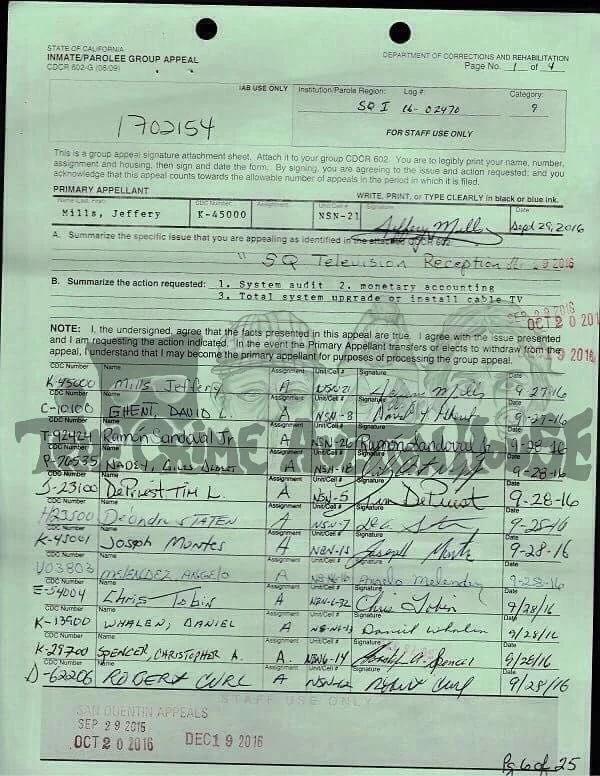 STATE OF CALIFORNIA
INMATE/PAROLEE GROUP APPEAL
CDCR 602-G (08/09)
DEPARTMENT OF CORRECTIONS AND REHABILITATION
Page No. 1 of 4
IAB USE ONLY Institution/Parole Region: Log #: Category:
SQ I 16-02470 9
1702154
FOR STAFF USE ONLY
This is a group appeal signature attachment sheet. Attach it to your group CDCR 602. You are to legibly print your name, number,
assignment and housing, then sign and date the form. By signing, you are agreeing to the issue and action requested; and you
acknowledge that this appeal counts towards the allowable number of appeals in the period in which it is filed.
PRIMARY APPELLANT WRITE, PRINT, or TYPE CLEARLY in black or blue ink.
Name (Last, First) CDC Number Assignment Unit/Cell # Signature Date
Mills, Jeffery K-45000 NSN-21 Jeffery Mills Sept 29, 2016
A. Summarize the specific issue that you are appealing as identified in the attached CDCR 602.
" SQ Television Reception 29 2016
B. Summarize the action requested: 1. System audit 2. monetary accounting
3. Total system upgrade or install cable TV
SEP 29 2016
OCT 20 2016
NOTE: I, the undersigned, agree that the facts presented in this appeal are true. I agree with the issue presented
and I am requesting the action indicated. In the event the Primary Appellant transfers or elects to withdraw from the
appeal, I understand that I may become the primary appellant for purposes of processing the group appeal.
CDC Number Name Assignment Unit/Cell # Signature Date
K-45000 Mills, Jeffery A NSN-21 Jeffery Mills 9-27-16
C-10100 GHENT, DAVID L. A NSN-8 David L Ghent 9-27-16
T-92424 Ramón Sandoval Jr. A NSN-26 Ramon Sandoval Jr. 9-28-16
P-76535 A NSN-18 9-28-16
J-23100 DePriest Tim L. A NSN-5 Tim DePriest 9-28-16
H23500 Deondre STATEN A NSN-7 9-25-16
K-45001 Joseph Montes A NSN-13 Joseph Montes 9-28-16
V03803 MELENDEZ ANGELO A Angelo Melendez 9-28-16
E-54004 Chris Tobin A Chris Tobin 9/28/16
K-13900 WHALEN, DANIEL A Daniel Whalen 9/28/16
K-29700 SPENCER, CHRISTOPHER A. A. Spencer 9/28/16
D-62206 ROBERT CURL A Robert Curl 9/28/16
TRUE CRIME AUCTION HOUSE
STAFF USE ONLY
SAN QUENTIN APPEALS
SEP 29 2016
OCT 20 2016 DEC 19 2016
Pg 6 of 25